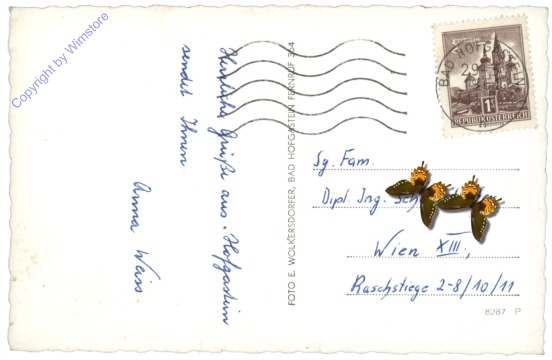 Copyright by Wimstore
Herzliche Grüße aus Hofgastein
sendet Ihnen
Anna Weiss
FOTO E. WOLKERSDORFER, BAD HOFGASTEIN FERNRUF 364
BAD HOFGASTEIN
29
1S
REPUBLIK ÖSTERREICH
Sg. Fam.
Dipl. Ing. Sch
Wien XIII,
Raschstiege 2-8/10/11
8287 P